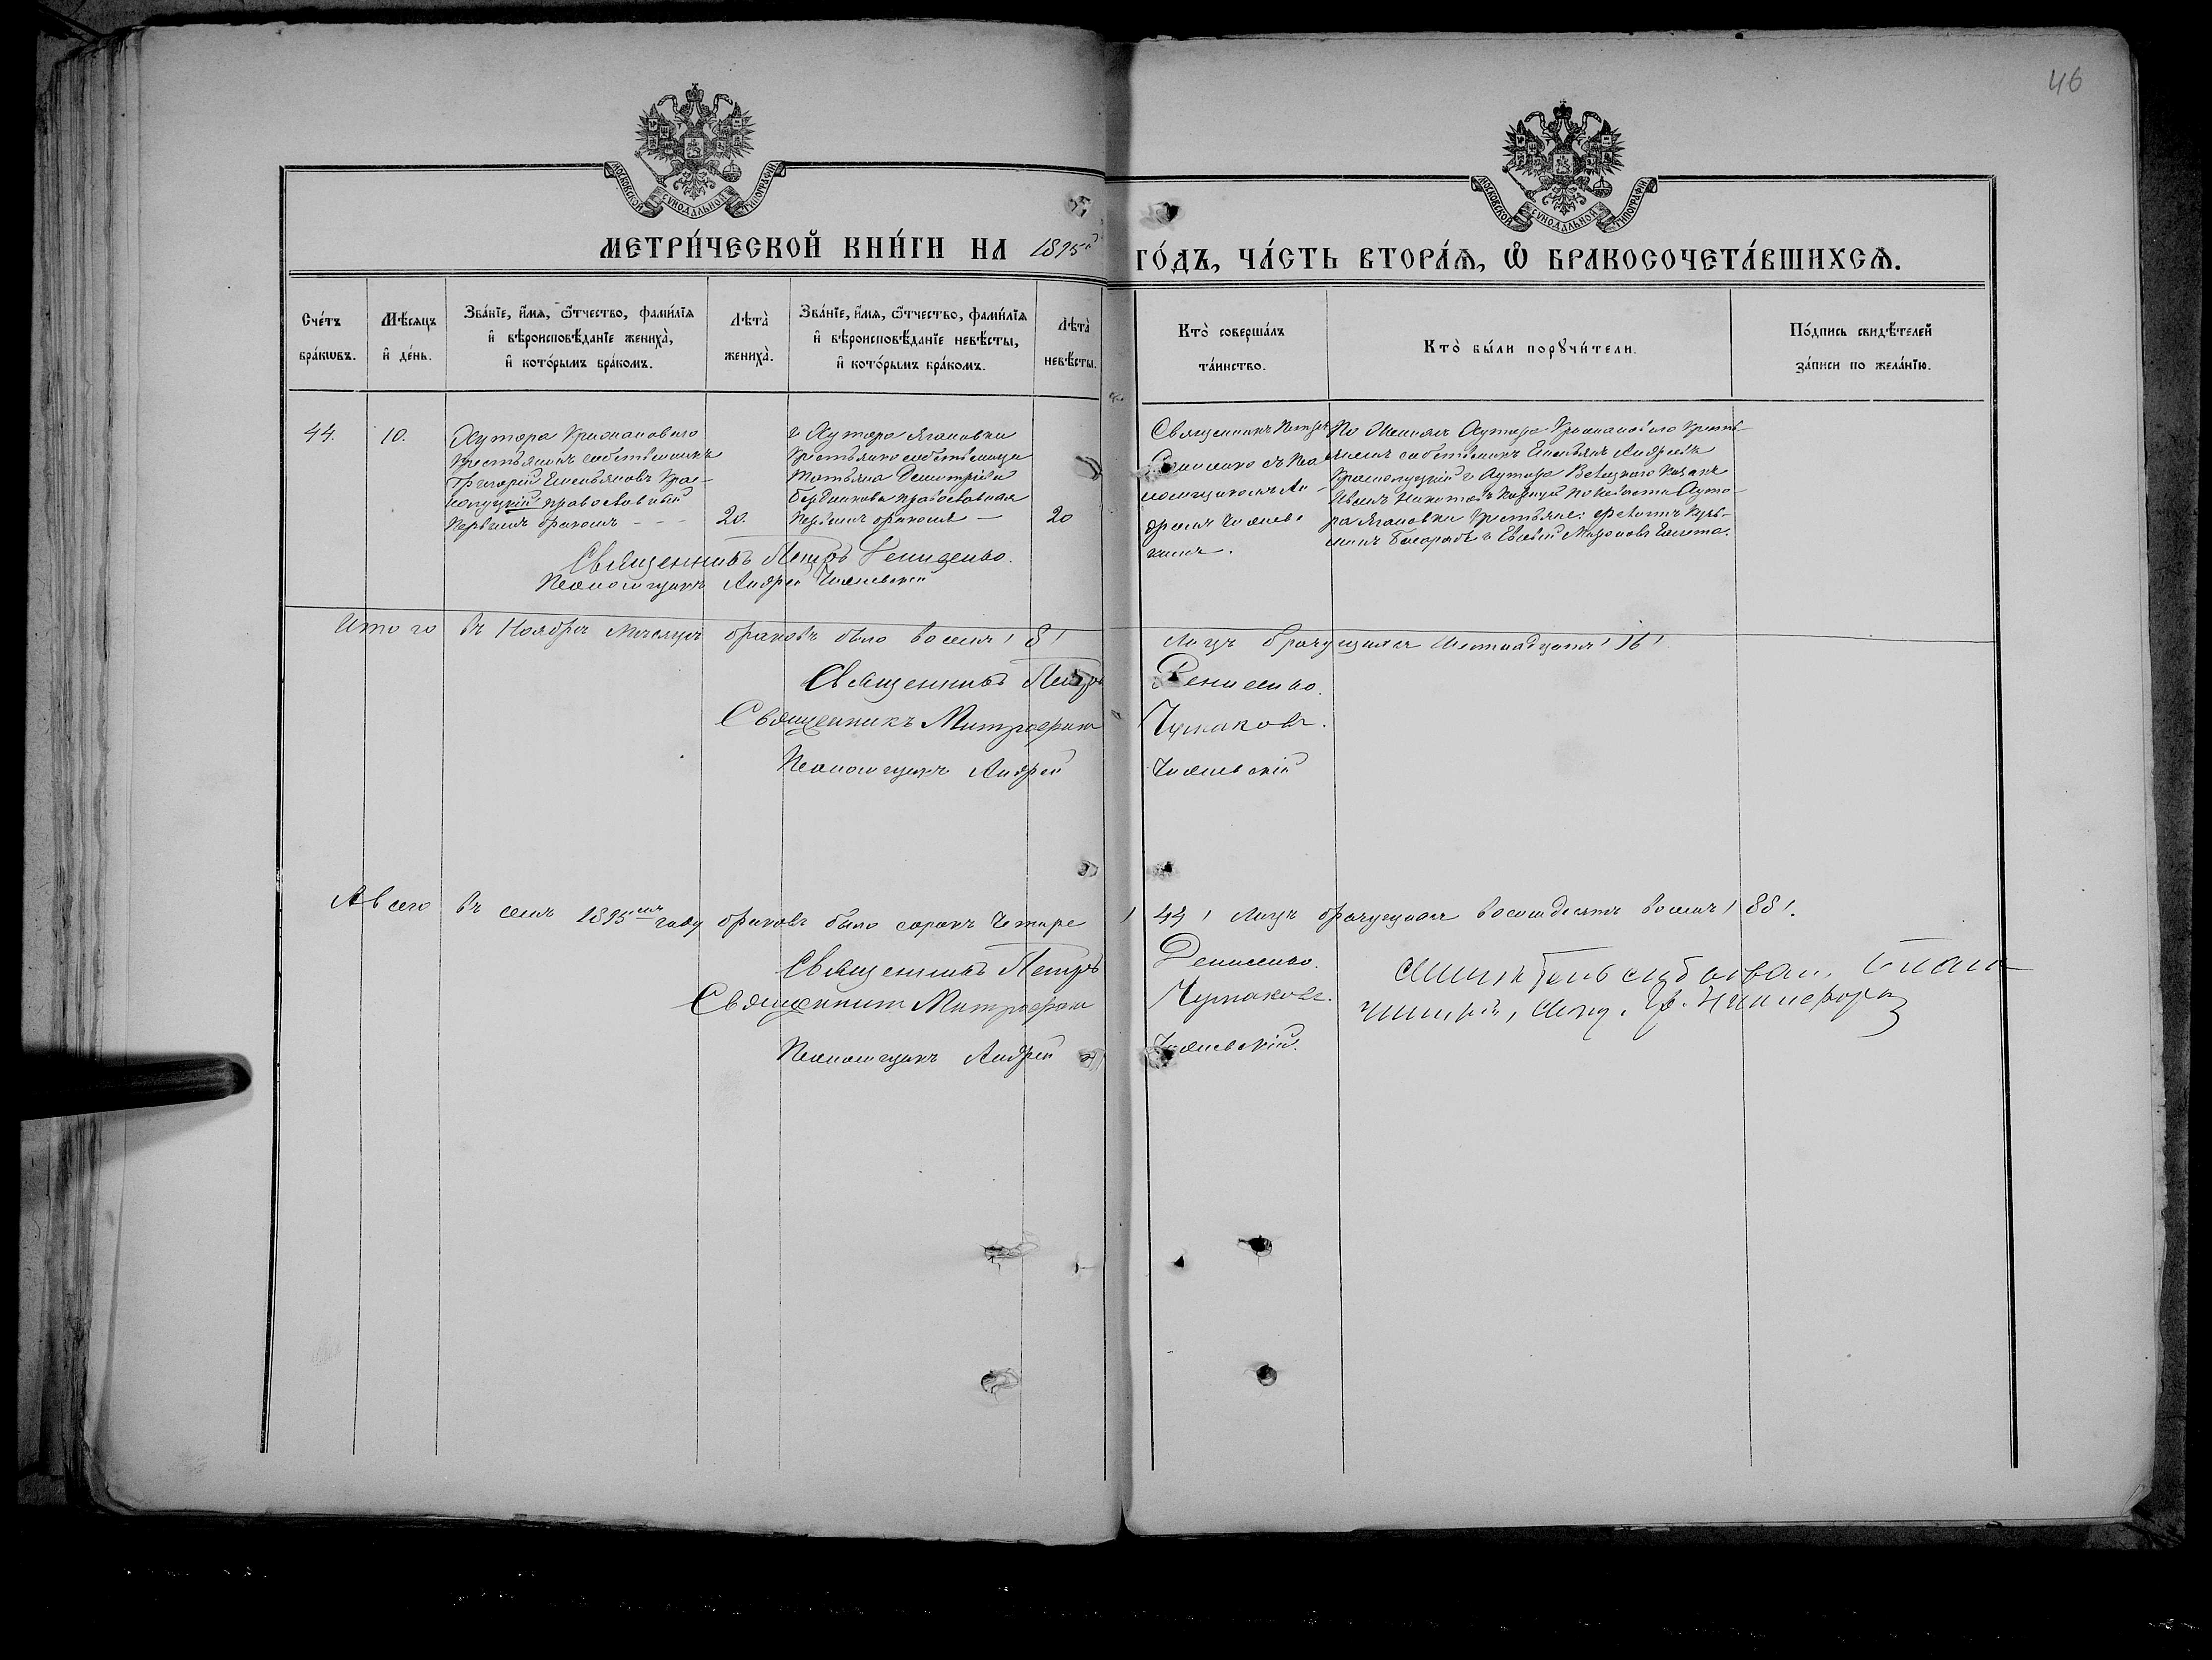 46
МОСКОВСКОЙ СѴНОДАЛЬНОЙ ТИПОГРАФІИ
МОСКОВСКОЙ СѴНОДАЛЬНОЙ ТИПОГРАФІИ
МЕТРИ́ЧЕСКОЙ КНИ́ГИ НА 1895й ГО́ДЪ, ЧА́СТЬ ВТОРА́Ѧ, Ѽ БРАКОСОЧЕТА́ВШИХСѦ.
Сче́тъ
бра́кѡвъ.
Мѣ́сяцъ
и҆ де́нь.
Зва́нїе, и҆́мѧ, ѻ҆́тчество, фами́лїѧ
и҆ вѣроисповѣ́данїе жениха̀,
и҆ кото́рымъ бра́комъ.
Лѣта̀
жениха̀.
Зва́нїе, и҆́мѧ, ѻ҆́тчество, фами́лїѧ
и҆ вѣроисповѣ́данїе невѣ́сты,
и҆ кото́рымъ бра́комъ.
Лѣта̀
невѣ́сты.
Кто̀ соверша́лъ
та́инство.
Кто̀ бы́ли порꙋчи́тели.
По́дпись свидѣ́телей
за́писи по жела́нїю.
44.
10.
Хутора
крестьянинъ собственникъ
Григорий Емельяновъ Крас-
нолуцкий православный
первымъ бракомъ - - -
20.
Хутора Ягановки
крестьянка собственница
Татьяна Димитріева
Бердникова православная
первымъ бракомъ —
20
Священникъ Петръ
Денисенко съ Пса
ломщикомъ Ан-
дреем
По Женихѣ Хутора Кресть-
янинъ собственникъ Емельянъ Андреевъ
Краснолуцкий и Хутора казакъ
по невѣстѣ Хуто-
ра Ягановки крестьяне:
Священникъ Петръ Денисенко.
Псаломщикъ Андрей
Итого въ Ноябрѣ мѣсяцѣ браковъ было восемь / 8 / Лицъ брачущихся шестнадцать / 16 /
Священникъ Петръ Денисенко.
Священникъ Митрофанъ Чумаковъ.
Псаломщикъ Андрей
А всего въ семъ 1895мъ году браковъ было сорокъ четыре / 44 / Лицъ брачущихся восемьдесятъ восемь / 88 /.
Священникъ Петръ Денисенко.
Священникъ Митрофанъ Чумаковъ.
Псаломщикъ Андрей